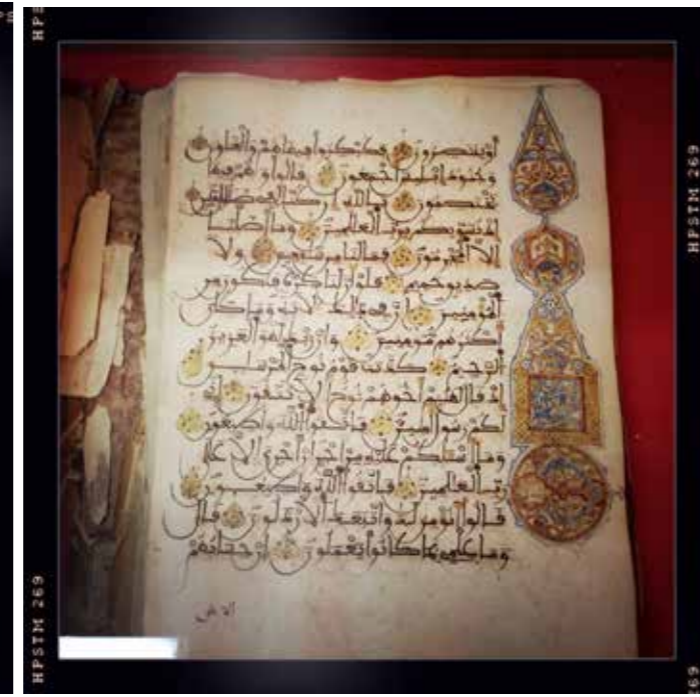 أو ينتصرون فكبكبوا فيها هم والغاون
وجنود إبليس أجمعون قالوا وهم فيها
يختصمون تالله إن كنا لفي ضلل مبين
إذ نسويكم برب العلمين وما أضلنا
إلا المجرمون فما لنا من شفعين ولا
صديق حميم فلو أن لنا كرة فنكون من
المؤمنين إن في ذلك لآية وما كان
أكثرهم مؤمنين وإن ربك لهو العزيز
الرحيم كذبت قوم نوح المرسلين
إذ قال لهم أخوهم نوح ألا تتقون إني
لكم رسول أمين فاتقوا الله وأطيعون
وما أسئلكم عليه من أجر إن أجري إلا على
رب العلمين فاتقوا الله وأطيعون
قالوا أنومن لك واتبعك الأرذلون قال
وما علمي بما كانوا يعملون إن حسابهم
HPSTM 269
HPSTM 269
69